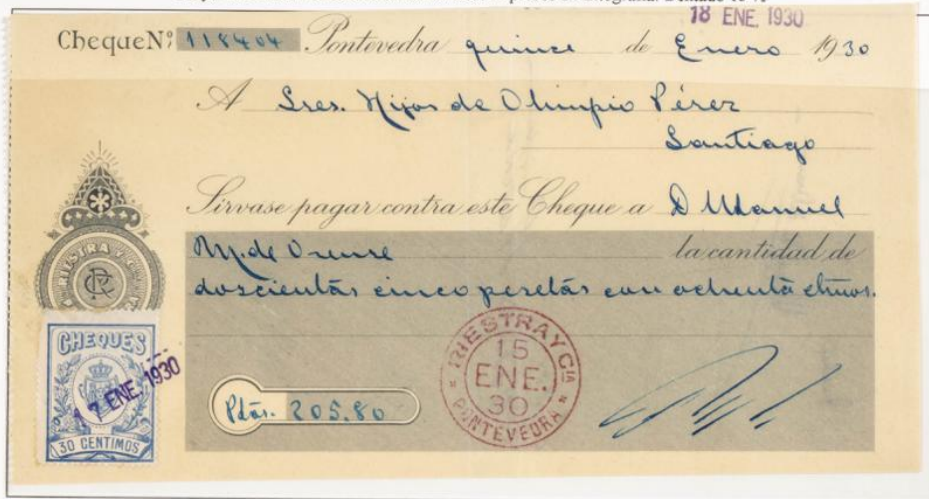 18 ENE. 1930
Cheque Nº 118404 Pontevedra quince de Enero 1930
A Sres. Hijos de Olimpio Pérez
Santiago
Sírvase pagar contra este Cheque a D Manuel
M. de Orense la cantidad de
doscientas cinco pesetas con ochenta ctmos.
RIESTRA Y Cª
CHEQUES
17 ENE. 1930
30 CENTIMOS
Ptas. 205.80
RIESTRA Y CIA
15
ENE.
30
PONTEVEDRA